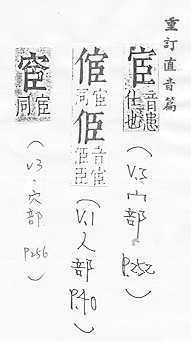 重訂直音篇
宦 音患 仕也
(V.3 宀部 P.252)
同宦
音宦
(V.1 人部 P.40)
同宦
(V3 穴部 P256)